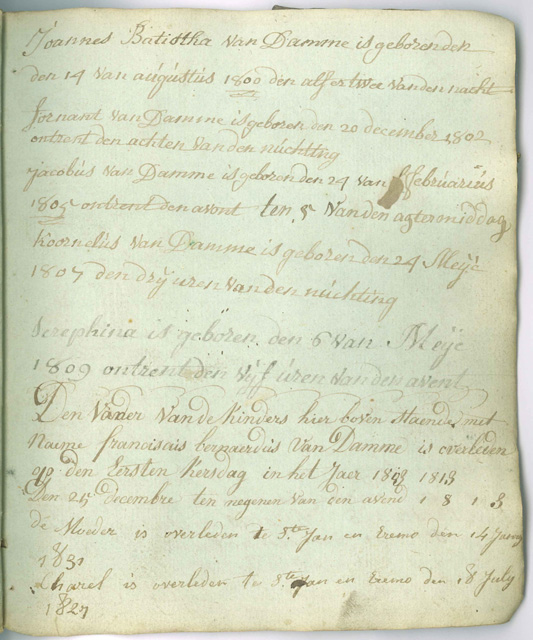 Joannes Batiotha van Damme is geboren den
den 14 van augustus 1800 den alf er twee vanden nacht
fornant van Damme is geboren den 20 december 1802
ontrent den achten vanden nuchting
jacobus van Damme is geboren den 24 van ffebruarius
1805 ontrent den avont ten 5 vanden agtermiddag
koornelius van Damme is geboren den 24 Meije
1807 den drij uren vanden nuchting
Serephina is geboren den 6 van Meije
1809 ontrent den vijf uren van den avent
Den vader van de kinders hier boven staende met
naeme franciscus bernardus van Damme is overleden
op den Eersten kersdag in het Jaer 1813
Den 25 decembre ten negenen van den avend 1 8 1 3
de Moeder is overleden te St Jan en Eremo den 14 Janry
1831
Charel is overleden te Ste Jan en Eremo den 18 July
1827